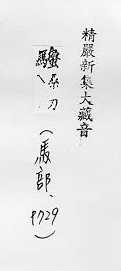 精嚴新集大藏音
桑刀
(馬部、P729)